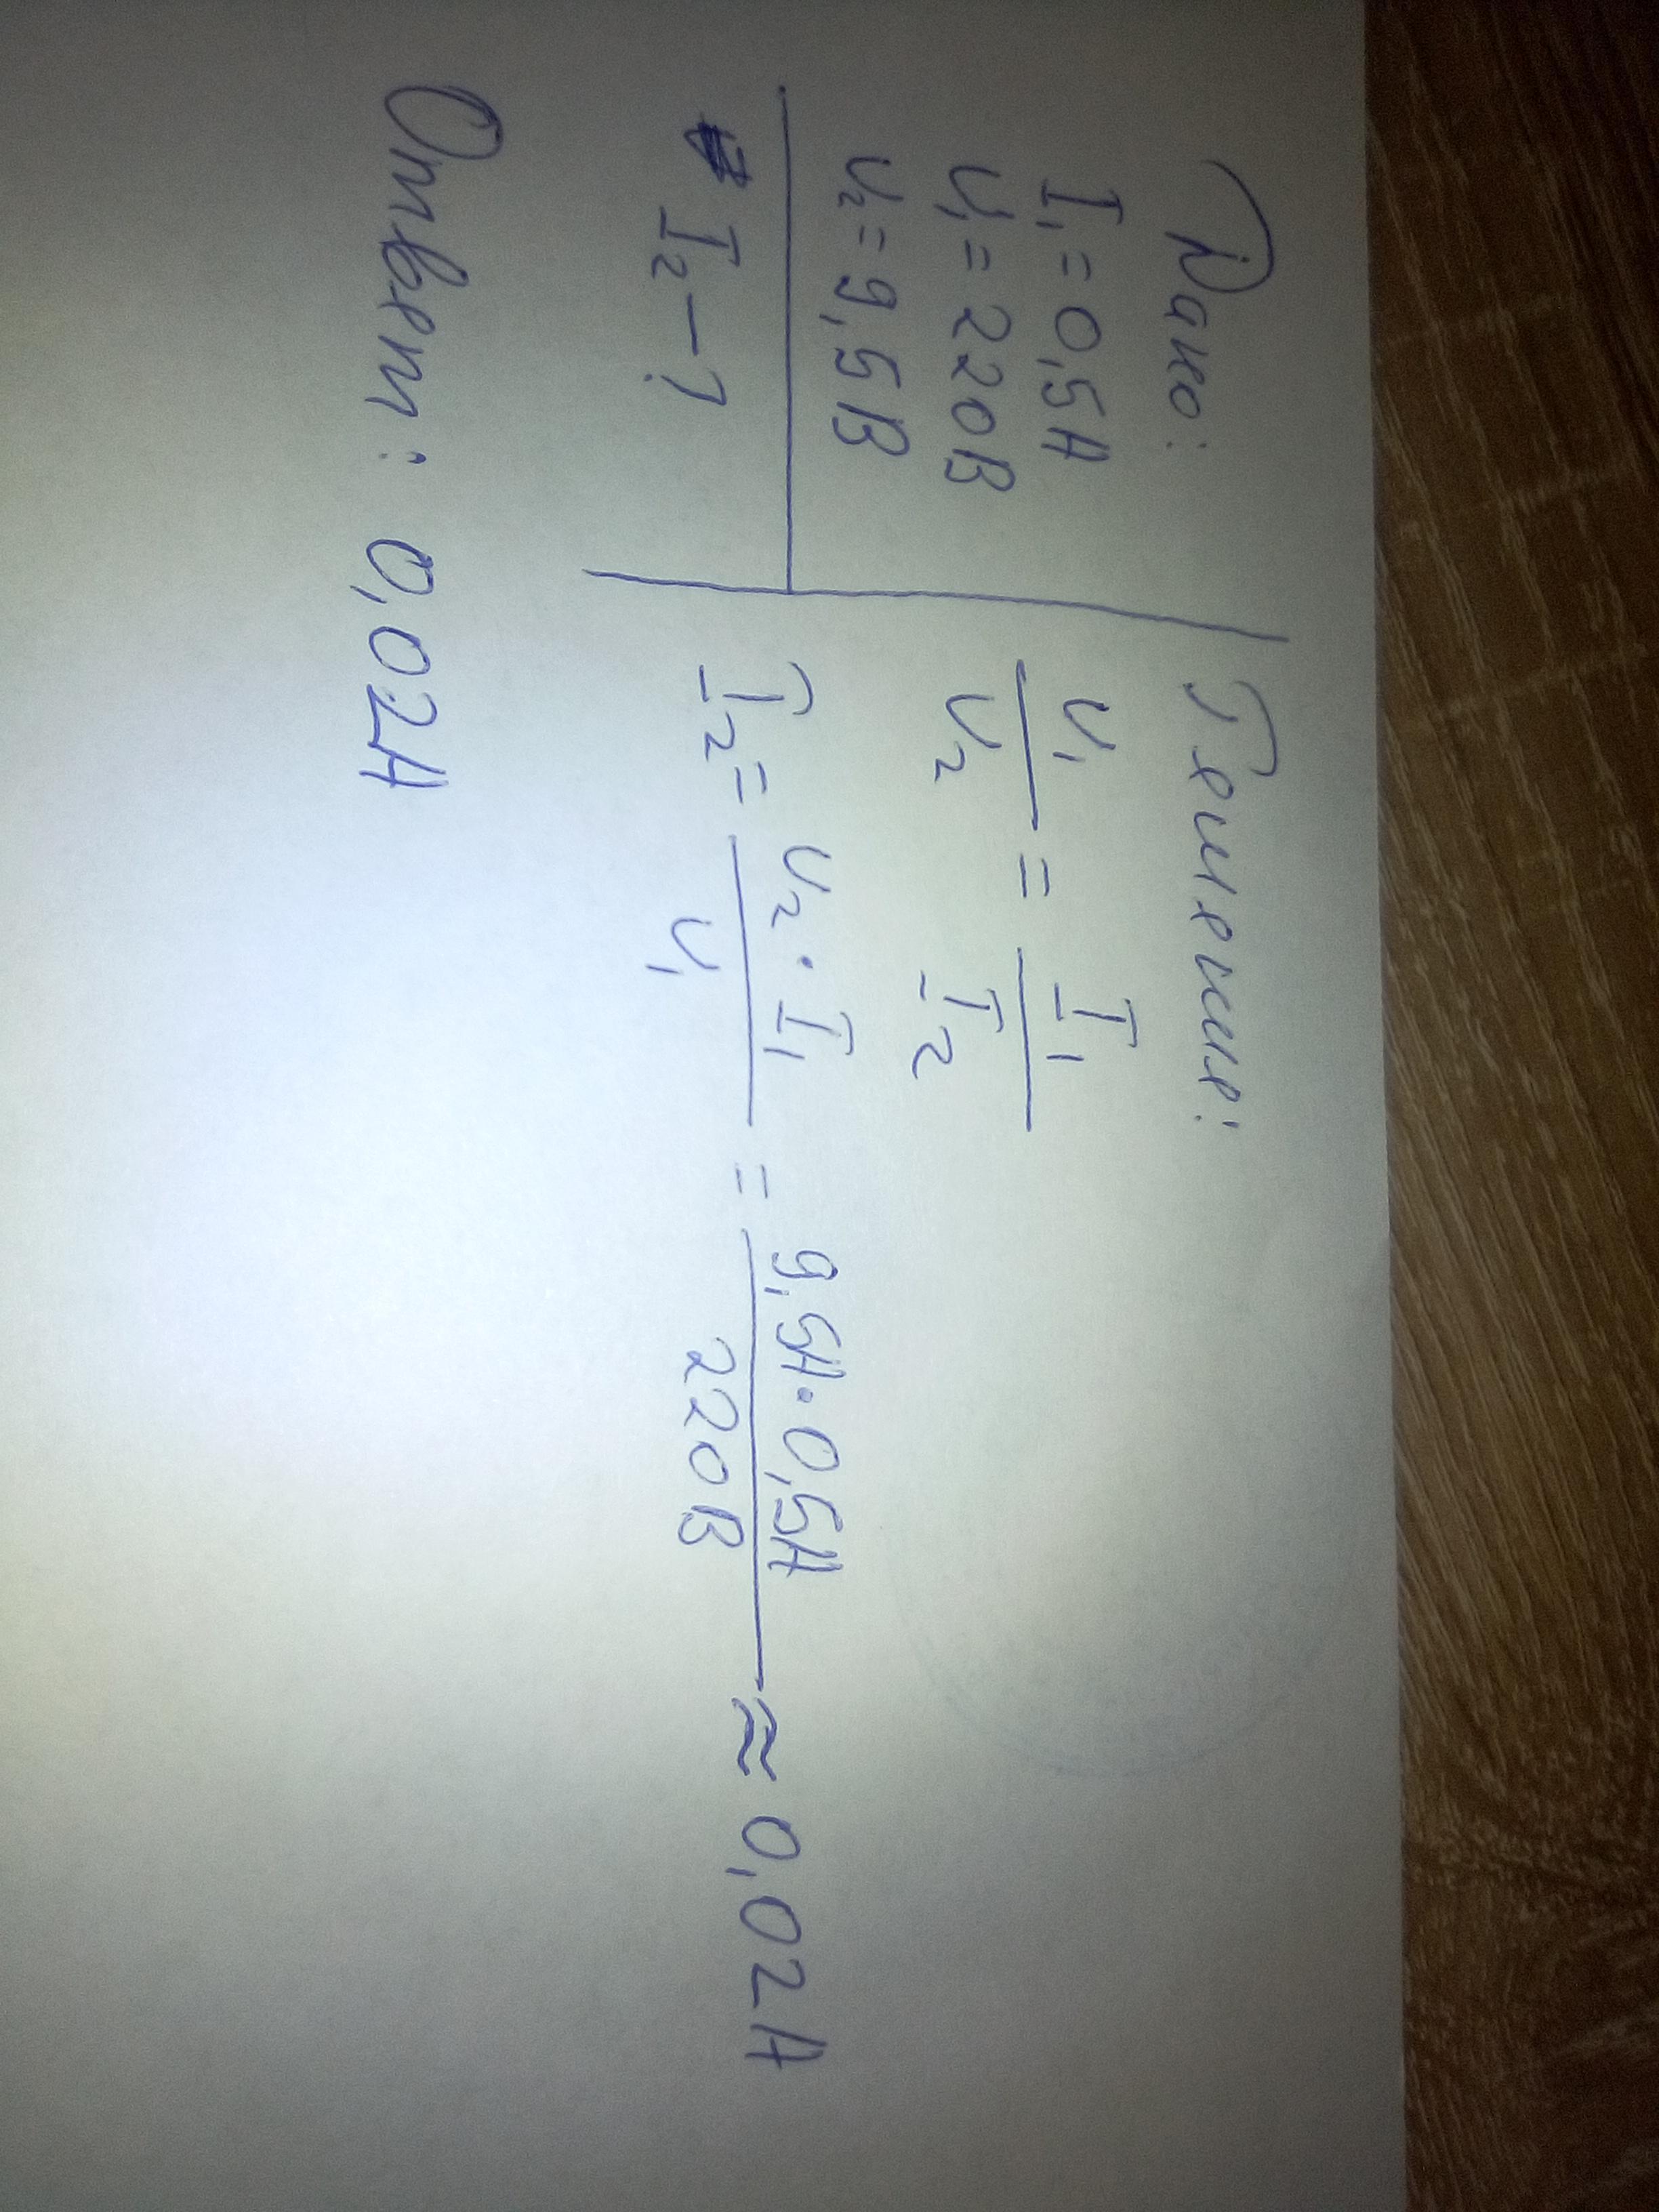 Дано:
I₁ = 0,5A
U₁ = 220В
U₂ = 9,5В
I₂ - ?
Решение:
U₁/U₂ = I₁/I₂
I₂ = U₂ · I₁/U₁ = 9,5A · 0,5A/220В ≈ 0,02A
Ответ: 0,02A